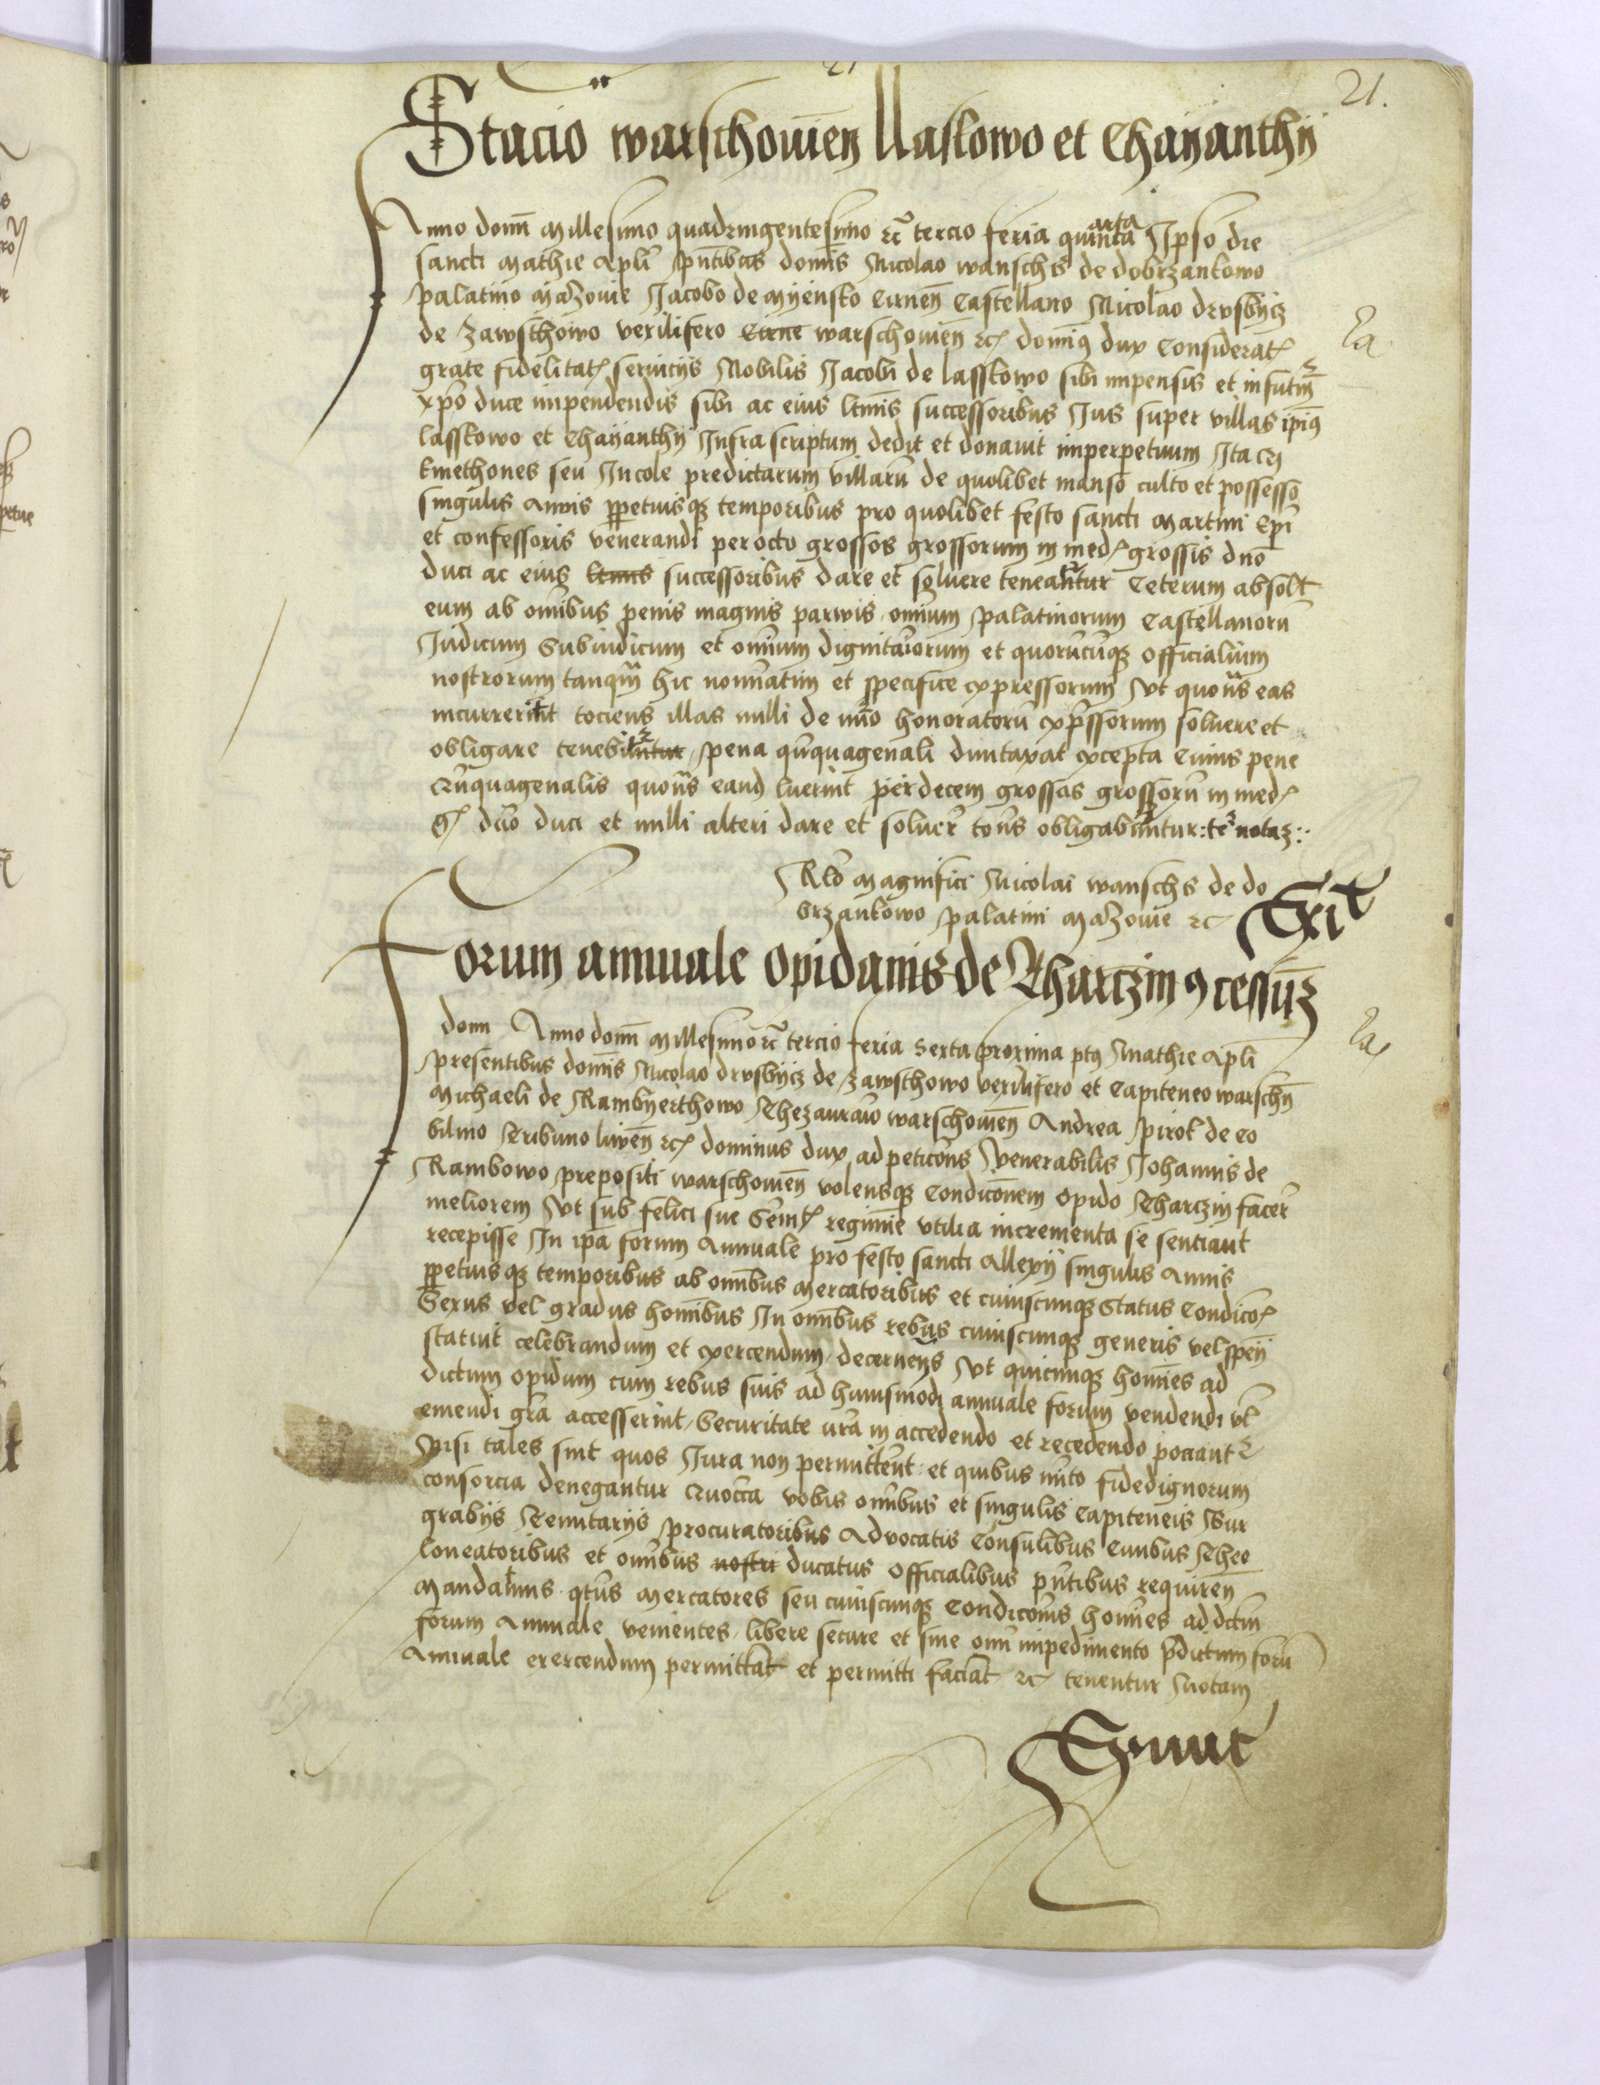 21.
Stacio warschowien llaskowo et Chayanthy
Anno domi Millesimo quadringentesimo rc tercio feria quinta arta Ipso die
sancti Mathie Apli pntibus domis Nicolao wanschs de dobrzankowo
palatino Mazouie Jacobo de Myensko Cirnen Castellano Nicolao drvsbycz
de Zawschowo vexilifero Cirne warschouien rc dominus dux Considerat
grate fidelitat seruicys Nobilis Jacobi de lasskowo sibi inpensis et in futm
xpo duce inpendendis sibi ac eius ltmis successoribus Jus super villas ipius
lasskowo et Chayanthy Infrascriptum dedit et donauit inperpetuum Ita q
kmethones seu Incole predictarum villaru de quolibet manso culto et possesso
singulis Annis ppetuisq temporibus pro quolibet festo sancti Martini Epi
et confessoris venerandi per octo grossos grossorum in med grossis dno
duci ac eius ltmis successoribus dare et soluere teneantur Ceterum absolt
eum ab omibus penis magnis parwis omium palatinorum Castellanoru
Judicum Subiudicum et omium dignitarorum et quorucuq officialium
nostrorum tanqm hic nominatim et specifice expressorum Vt quons eas
incurrerint tociens illas nulli de nuo honoratoru expssorum soluere et
obligare tenebuntur pena qnquagenali duntaxat excepta Cuius pene
qnquagenalis quons eam luerint per decem grossos grossoru in med
g duo duci et nulli alteri dare et soluer tons obligabuntur: te notaz:
Rlo Magnifici Nicolai wanschs de do
brzankowo palatini Mazouie rc Exit
Forum annuale opidanis de Tharczin 9cessuz
dom Anno domi Millesimo rc tercio feria sexta proxima pt Mathie Apli
presentibus domis Nicolao drvsbycz de Zawschowo vexilifero et Capiteneo warschn
Michaeli de Rambyerthowo Thezaurario warschouien Andrea pirol de co
bilino Tribuno liwen rc dominus dux ad peticons Venerabilis Johannis de
Rambowo prepositi warschouien volensq Condiconem opido Tharczin facer
meliorem Vt sub felici sue Sernit regimine vtilia incrementa se sentiant
recepisse In ipa forum Annuale pro festo sancti Allexy singulis Annis
ppetuisq temporibus ab omibus Mercatoribus et cuiuscunq Status Condico
Sexus vel gradus homibus In omibus rebus cuiuscunq generis vel spen
statuit celebrandum et exercendum decernens Vt quicunq homies ad
dictum opidum cum rebus suis ad huiusmodi annuale forum vendendi vl
emendi gra accesserint Securitate nra in accedendo et recedendo pociant
Nisi tales sint quos Jura non permittent et quibus mito fidedignorum
consorcia denegantur Quocca vobis omibus et singulis Capiteneis Bur
grabys Tenutarys procuratoribus Advocatis Consulibus Ciuibus Theo
loneatoribus et omibus nostri ducatus officialibus pntibus requiren
Mandamus qtus Mercatores seu cuiuscunq Condicois homies ad dctm
forum Annuale venientes libere secure et sine omi inpedimento pdictum foru
Annuale exercendum permittat et permitti faciat rc tenentur Notam